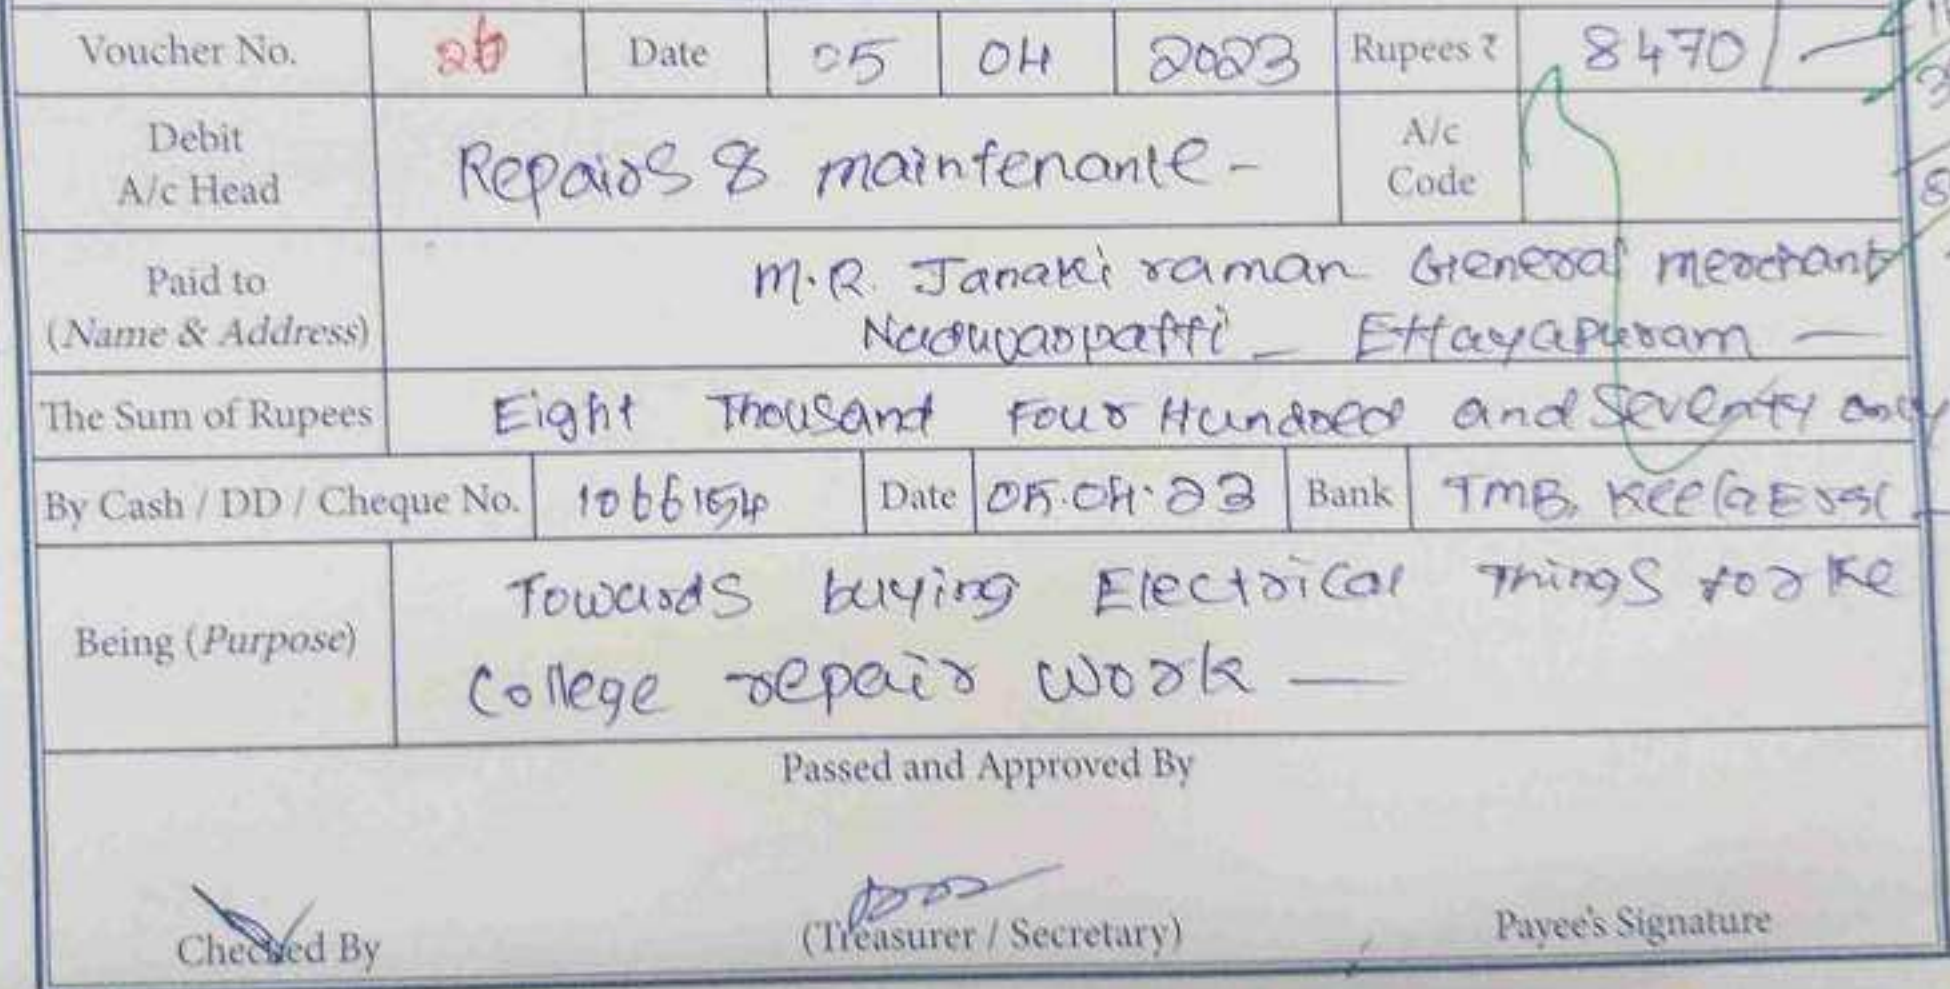 Voucher No. 26 Date 05 04 2023 Rupees ₹ 8470/-
Debit A/c Head Repairs & maintenance - A/c Code
Paid to (Name & Address) M.R. Janaki raman General merchant
Naduvarpatti - Ettayapuram -
The Sum of Rupees Eight Thousand Four Hundred and Seventy only
By Cash / DD / Cheque No. 1066154 Date 05.04.23 Bank TMB,
Being (Purpose) Towards buying Electrical Things for the
College repair work -
Passed and Approved By
Checked By (Treasurer / Secretary) Payee's Signature